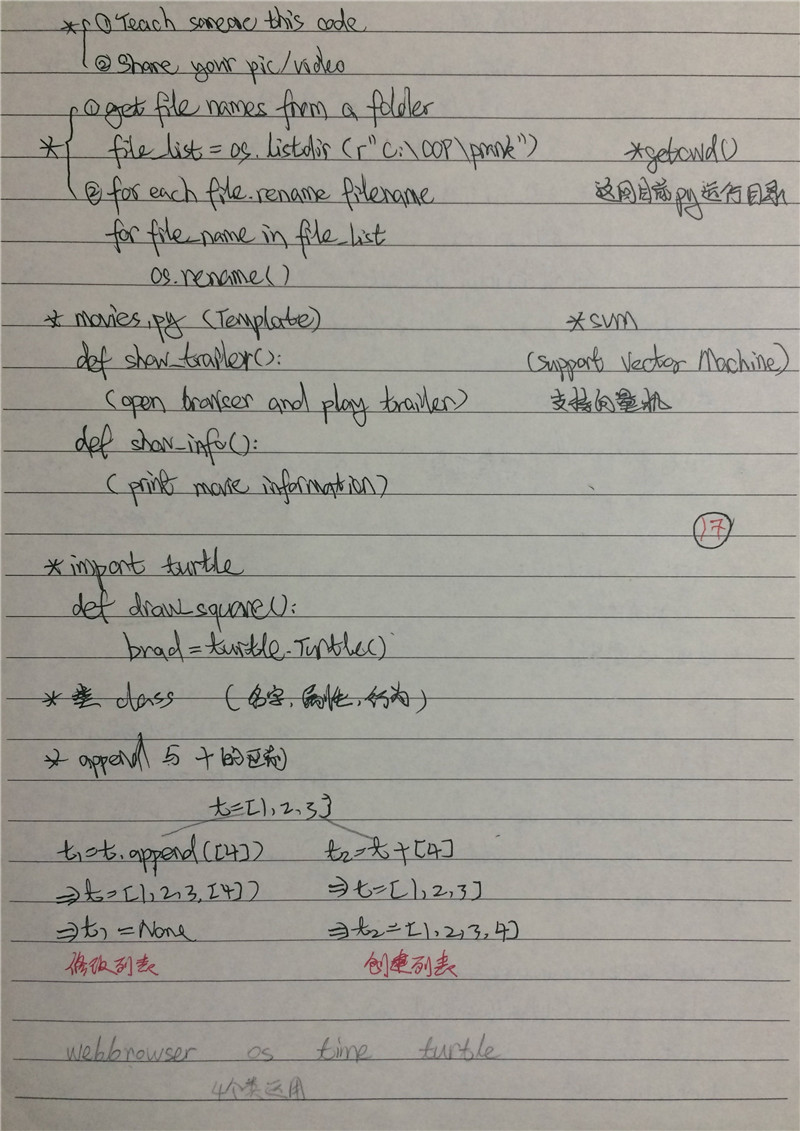 * ① Teach someone this code
② Share your pic/video
* ① get file names from a folder
file_list = os.listdir (r"C:\OOP\prank")
*getcwd()
② for each file.rename filename
返回目前py运行目录
for file_name in file_list
os.rename()
* movies.py (Template)
*SVM
def show_trailer():
(Support Vector Machine)
(open browser and play trailer)
支持向量机
def show_info():
(print movie information)
17
* import turtle
def draw_square():
brad = turtle.Turtle()
* 类 class (名字, 属性, 行为)
* append 与 + 的区别
t=[1,2,3]
t₁=t.append([4])
t₂=t+[4]
⇒t=[1,2,3,[4])
⇒t=[1,2,3]
⇒t₁=None
⇒t₂=[1,2,3,4]
修改列表
创建列表
webbrowser os time turtle
4个类运用